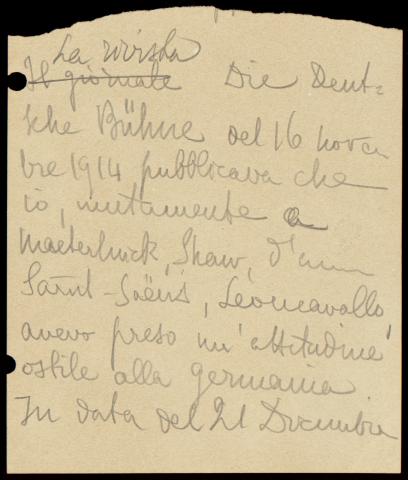 La rivista
Il giornale Die Deut=
sche Bühne del 16 novem
bre 1914 pubblicava che
io, unitamente a
Maeterlinck, Shaw, d'Ann
Saint-Saëns, Leoncavallo,
avevo preso un'attitudine
ostile alla Germania.
In data del 21 Dicembre